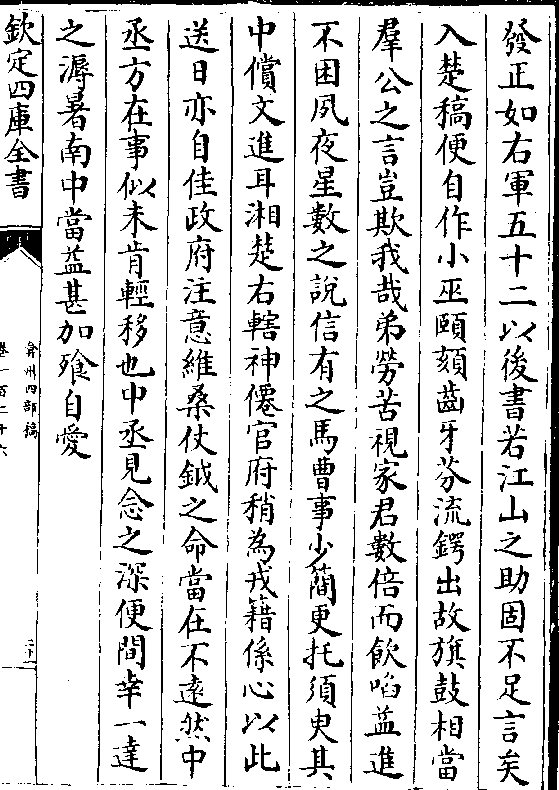 發正如右軍五十二以後書若江山之助固不足言矣
入楚稿便自作小巫頤頦齒牙芬流鍔出故旗鼓相當
羣公之言豈欺我哉弟勞苦視家君數倍而飲啗益進
不困夙夜星數之說信有之馬曹事少簡更托須臾其
中償文進耳湘楚右轄神僊官府稍為戎籍係心以此
送日亦自佳政府注意維桑仗鉞之命當在不遠然中
丞方在事似未肯輕移也中丞見念之深便間幸一達
之溽暑南中當益甚加飱自愛
欽定四庫全書
弇州四部稿
卷一百二十六